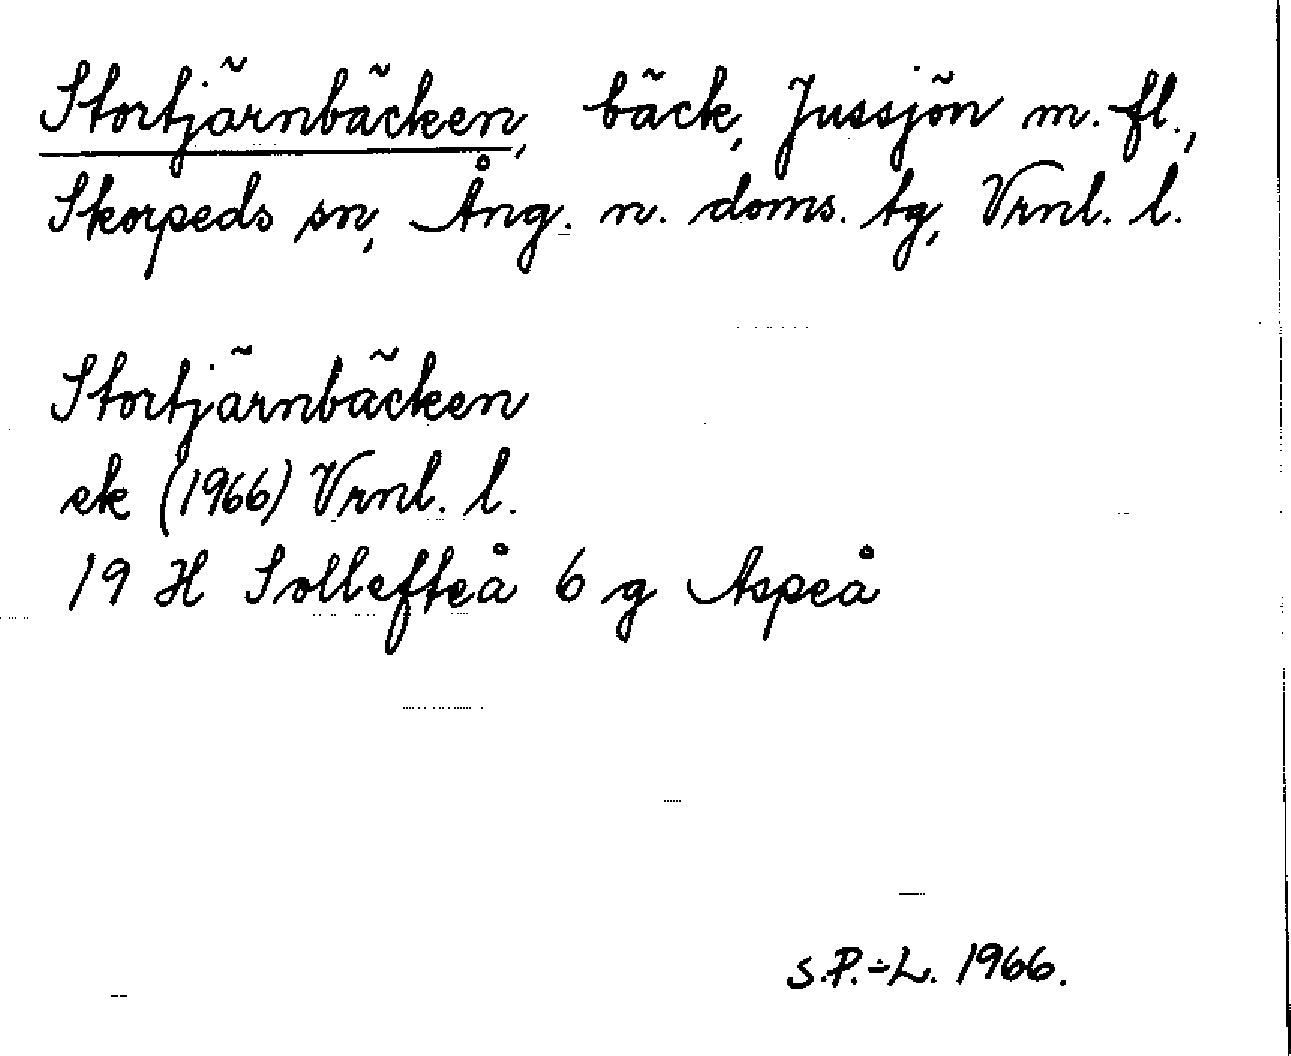 Stortjärnbäcken, bäck, Jussjön m. fl.,
Skorpeds sn, Ång. n. doms. tg, Vrnl. l.
Stortjärnbäcken
ek (1966) Vrnl. l.
19 H Sollefteå 6 g Aspeå
S.P.-L. 1966.